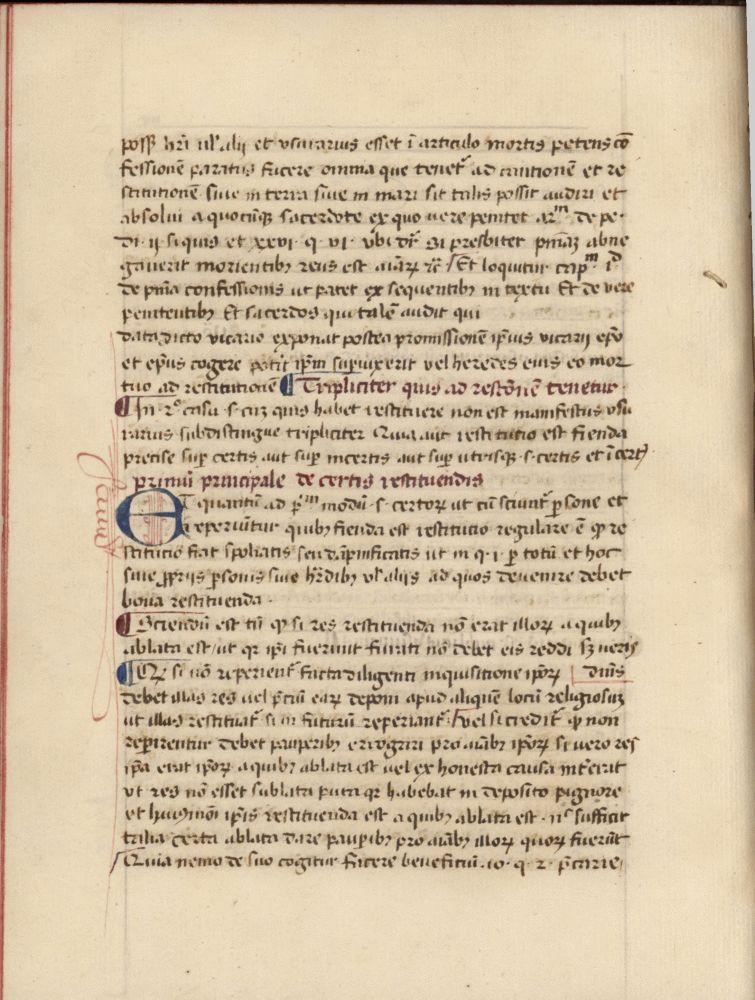 possꝫ hr̄i ul' alij et vsurarius esset ī articulo mortis petens cō
fessionē paratus facere omnia que tenet̄ ad cautionē et re
stitutionē siue in terra siue in mari sit talis possit audiri et
absolui a quocūqꝫ sacerdote ex quo uere penitet ar.ᵐ de pe.
di. ij si quis et xxvi. q. vi. vbi dr̄ Si presbiter pn̄iaꝫ abne
gauerit morientibꝫ reus est aīarꝫ Et loquitur
de pn̄ia confessionis ut patet ex sequentibꝫ in textu Et de vere
penitentibꝫ Et sacerdos qui talē audit qui
data dicto vicario exponat postea promissionē ip̄ius vicarij ep̄o
et ep̄us cogere poti't ip̄m si supuixerit vel heredes eius eo mor
tuo ad restitutionē Tripliciter quis ad resto͞nē tenetur.
In .2º casu .s. cuꝫ quis habet restituere non est manifestus vsu
rarius subdistingue tripliciter Quia aut restitutio est fienda
precise sup̄ certis aut sup̄ incertis aut sup̄ utrisqꝫ .s. certis et īcertis
primū principale de certis restituendis
Et quantū ad p̄ᵐ modū .s. certorꝫ ut cū sciunt̄ p̄sone et
reperiūtur quibꝫ fienda est restitutio regulare ē ꝙ re
stitucio fiat spoliatis seu dāpnificatis ut in q. i. p̄ totū et hoc
siue ꝓprijs p̄sonis siue hr̄dibꝫ ul' alijs ad quos deuenire debet
bona restituenda.
Sciendū est tn̄ ꝙ si res restituenda nō erat illorꝫ a quibꝫ
ablata est, ut qr ip̄i fuerunt furati nō debet eis reddi sꝫ ueris
dn̄is
Qꝫ si nō reperient̄ facta diligenti inquisitione ip̄orꝫ
debet illas res vel p̄ciū earꝫ deponi apud aliquē locū religiosuꝫ
ut illas restituāt si in futurū reperiant̄ vel si credit̄ ꝙ non
reperirentur debet pauperibꝫ erogari pro aīabꝫ ip̄orꝫ si vero res
ip̄a erat ip̄orꝫ a quibꝫ ablata est vel ex honesta causa int̄erat
vt res nō esset sublata puta qr habebat in deposito pignore
et huꝰmōi ip̄is restituenda est a quibꝫ ablata est. nᶜ sufficit
talia certa ablata dare paup̄ibꝫ pro aīabꝫ illorꝫ quorꝫ fuerūt
Quia nemo de suo cogitur facere beneficiū .10. q. 2. p̄carie